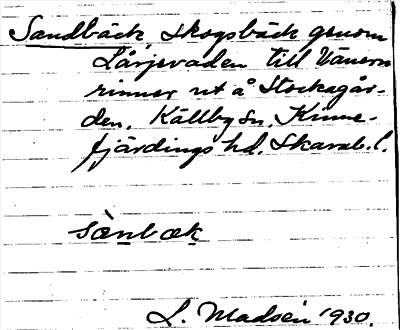 Sandbäck, skogsbäck genom
Lårjevaden till Vänern
rinner ut å Stockagår-
den. Källby sn. Kinne-
fjärdings hd. Skarab. l.
sànbæk
L. Madsén 1930.